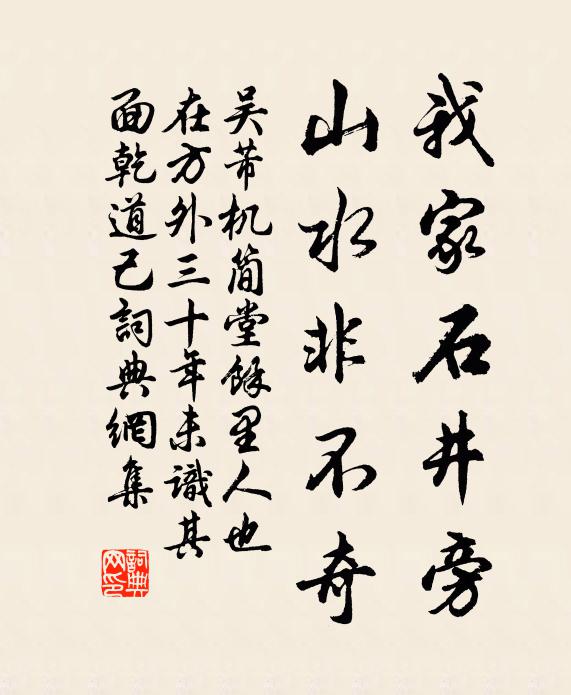 我家石井旁
山水非不奇
吴芾机简堂馀里人也
在方外三十年未识其
面乾道己詞典網集
詞典网印